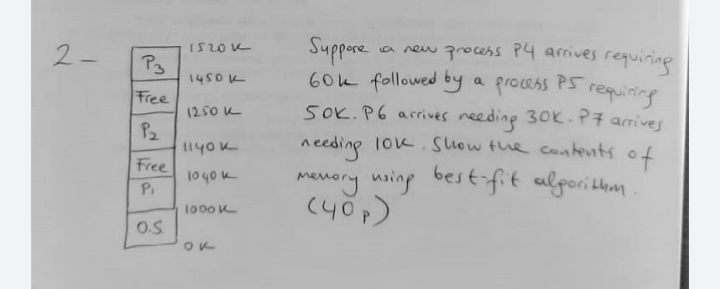 2-
1520K
P3
1450K
Free
1250K
P2
1140K
Free
1040K
P1
1000K
O.S.
0K
Suppose a new process P4 arrives requiring
60k followed by a process P5 requiring
50K. P6 arrives needing 30K. P7 arrives
needing 10K. Show the contents of
memory using best-fit algorithm.
(40p)